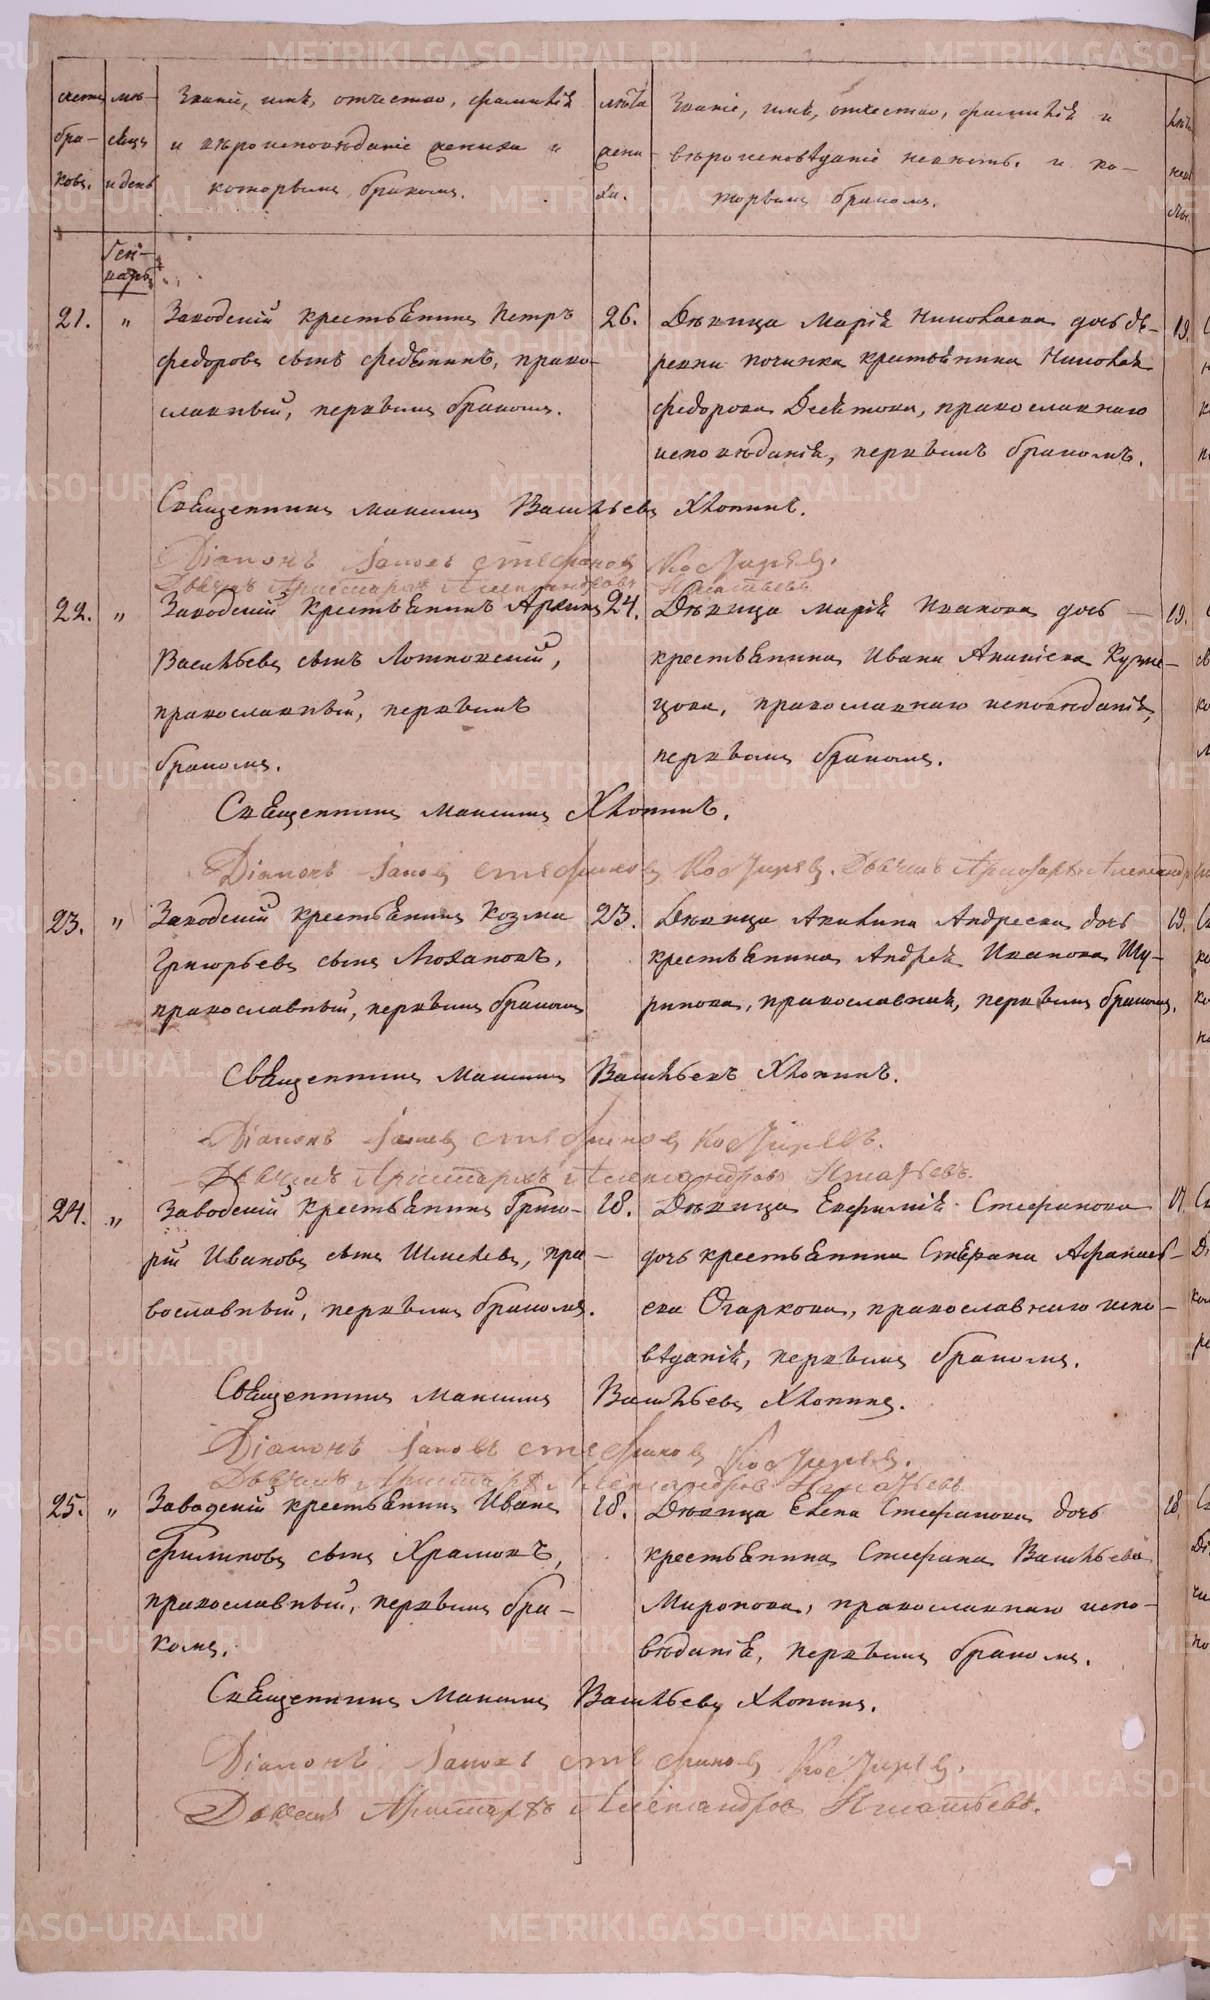 счетъ бра- ковъ.
мѣ- сяцъ и день
Званіе, имѧ, отчество, фамилія
и вѣроисповѣданіе жениха и
которымъ бракомъ.
лѣта жени- ха.
Званіе, имя, отчество, фамилія и
вѣроисповѣданіе невѣсты, и ко-
торымъ бракомъ.
Ген-
варь
21. " Заводскій крестьянинъ Петръ 26. Дѣвица Марія Николаева дочь де- 19.
Федоровъ сынъ Федянинъ, право- ревни починка крестьянина Николая
славный, первымъ бракомъ. Федорова Десятова, православнаго
исповѣданія, первымъ бракомъ.
Священникъ Максимъ Васильевъ Хлопинъ.
Діаконъ Іаковъ Стефановъ
Дьячекъ Аристархъ Александровъ Игнатьевъ
22. " Заводскій крестьянинъ 24. Дѣвица Марія Иванова дочь — 19.
Васильевъ сынъ крестьянина Ивана Ананіева Кузне-
православный, первымъ цова, православнаго исповѣданія,
бракомъ. первымъ бракомъ.
Священникъ Максимъ Хлопинъ.
Діаконъ Іаковъ Стефановъ Дьячекъ Аристархъ
23. " Заводскій крестьянинъ Козма 23. Дѣвица Акилина Андреева дочь 19.
Григорьевъ сынъ крестьянина Андрея Иванова Шу-
православный, первымъ бракомъ ринова, православная, первымъ бракомъ.
Священникъ Максимъ Васильевъ Хлопинъ.
Діаконъ Іаковъ Стефановъ
Дьячекъ Аристархъ Александровъ Игнатьевъ.
24. " Заводскій крестьянинъ Григо- 18. Дѣвица Евфимія Стефанова
рій Ивановъ сынъ Шмелевъ, пра- дочь крестьянина Стефана Афанась-
вославный, первымъ бракомъ. ева Огаркова, православнаго испо-
вѣданія, первымъ бракомъ.
Священникъ Максимъ Васильевъ Хлопинъ.
Діаконъ Іаковъ Стефановъ
Дьячекъ Аристархъ Александровъ Игнатьевъ
25. " Заводскій крестьянинъ Иванъ 18. Дѣвица Елена Стефанова дочь 18.
Филиповъ сынъ Храмовъ, крестьянина Стефана Васильева
православный, первымъ бра- Миронова, православнаго испо-
комъ. вѣданія, первымъ бракомъ.
Священникъ Максимъ Васильевъ Хлопинъ.
Діаконъ Іаковъ Стефановъ
Дьячекъ Аристархъ Александровъ Игнатьевъ.
METRIKI.GASO-URAL.RU